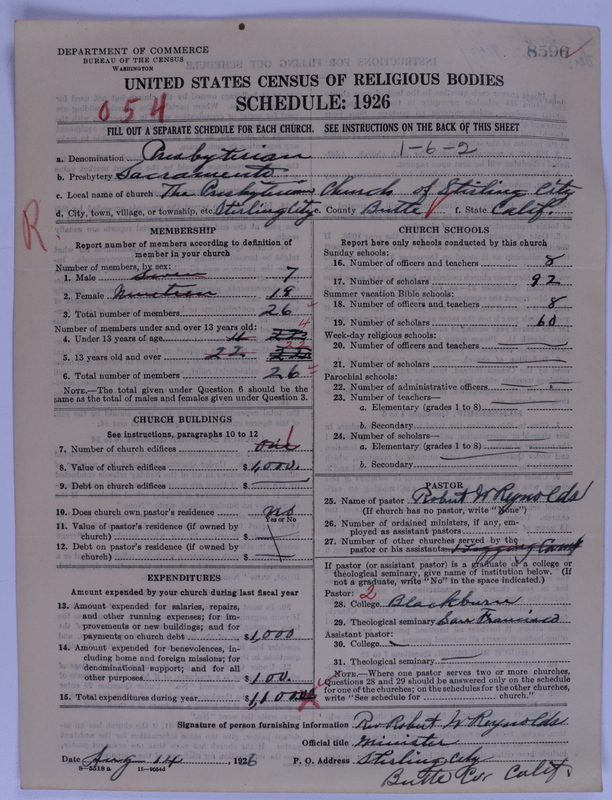 DEPARTMENT OF COMMERCE
BUREAU OF THE CENSUS
WASHINGTON
8596
UNITED STATES CENSUS OF RELIGIOUS BODIES
SCHEDULE: 1926
054
FILL OUT A SEPARATE SCHEDULE FOR EACH CHURCH. SEE INSTRUCTIONS ON THE BACK OF THIS SHEET
1-6-2
a. Denomination Presbyterian
b. Presbytery Sacramento
c. Local name of church The Presbyterian Church of Stirling City
d. City, town, village, or township, etc. Stirling City e. County Butte f. State Calif.
R.
MEMBERSHIP
Report number of members according to definition of
member in your church
Number of members, by sex:
1. Male Seven 7
2. Female Nineteen 19
3. Total number of members 26
Number of members under and over 13 years old:
4. Under 13 years of age 4
5. 13 years old and over 22 22
6. Total number of members 26
NOTE.—The total given under Question 6 should be the
same as the total of males and females given under Question 3.
CHURCH BUILDINGS
See instructions, paragraphs 10 to 12
7. Number of church edifices one 1
8. Value of church edifices $4000.
9. Debt on church edifices $
10. Does church own pastor's residence No
Yes or No
11. Value of pastor's residence (if owned by
church) $
12. Debt on pastor's residence (if owned by
church) $
EXPENDITURES
Amount expended by your church during last fiscal year
13. Amount expended for salaries, repairs,
and other running expenses; for im-
provements or new buildings; and for
payments on church debt $1,000
14. Amount expended for benevolences, in-
cluding home and foreign missions; for
denominational support; and for all
other purposes $100.
15. Total expenditures during year $1,100.00
CHURCH SCHOOLS
Report here only schools conducted by this church
Sunday schools:
16. Number of officers and teachers 8
17. Number of scholars 92
Summer vacation Bible schools:
18. Number of officers and teachers 8
19. Number of scholars 60
Week-day religious schools:
20. Number of officers and teachers
21. Number of scholars
Parochial schools:
22. Number of administrative officers
23. Number of teachers—
a. Elementary (grades 1 to 8)
b. Secondary
24. Number of scholars—
a. Elementary (grades 1 to 8)
b. Secondary
PASTOR
25. Name of pastor Robert W Reynolds
(If church has no pastor, write "None")
26. Number of ordained ministers, if any, em-
ployed as assistant pastors
27. Number of other churches served by the
pastor or his assistants Logging Camp
If pastor (or assistant pastor) is a graduate of a college or
theological seminary, give name of institution below. (If
not a graduate, write "No" in the space indicated.)
Pastor: 2
28. College Blackburn
29. Theological seminary San Francisco
Assistant pastor:
30. College
31. Theological seminary
NOTE.—Where one pastor serves two or more churches,
Questions 28 and 29 should be answered only on the schedule
for one of the churches; on the schedules for the other churches,
write "See schedule for ........ church."
Signature of person furnishing information Rev Robert W Reynolds
Official title Minister
Date Aug 14, 1926 P. O. Address Stirling City
8-5518a 11-9054d
Butte Co. Calif.